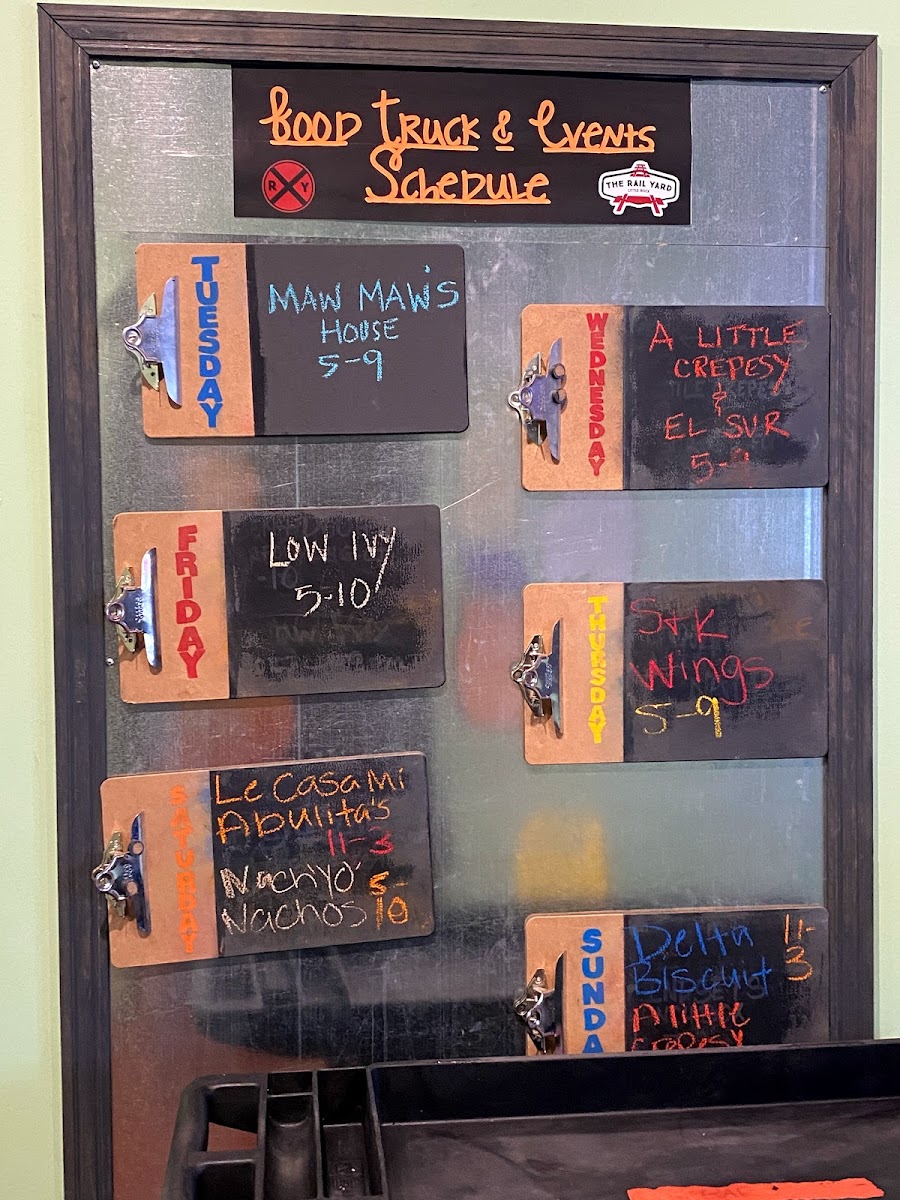 Food Truck & Events
Schedule
R Y
THE RAIL YARD
LITTLE ROCK
TUESDAY
MAW MAW'S
HOUSE
5-9
WEDNESDAY
A LITTLE
CREPESY
&
EL SUR
5-9
FRIDAY
LOW IVY
5-10
THURSDAY
S&K
Wings
5-9
SATURDAY
Le Casa Mi
Abulita's
11-3
NachYO'
Nachos
5-
10
SUNDA
Delta
Biscuit
11-
3
A little
crepesy